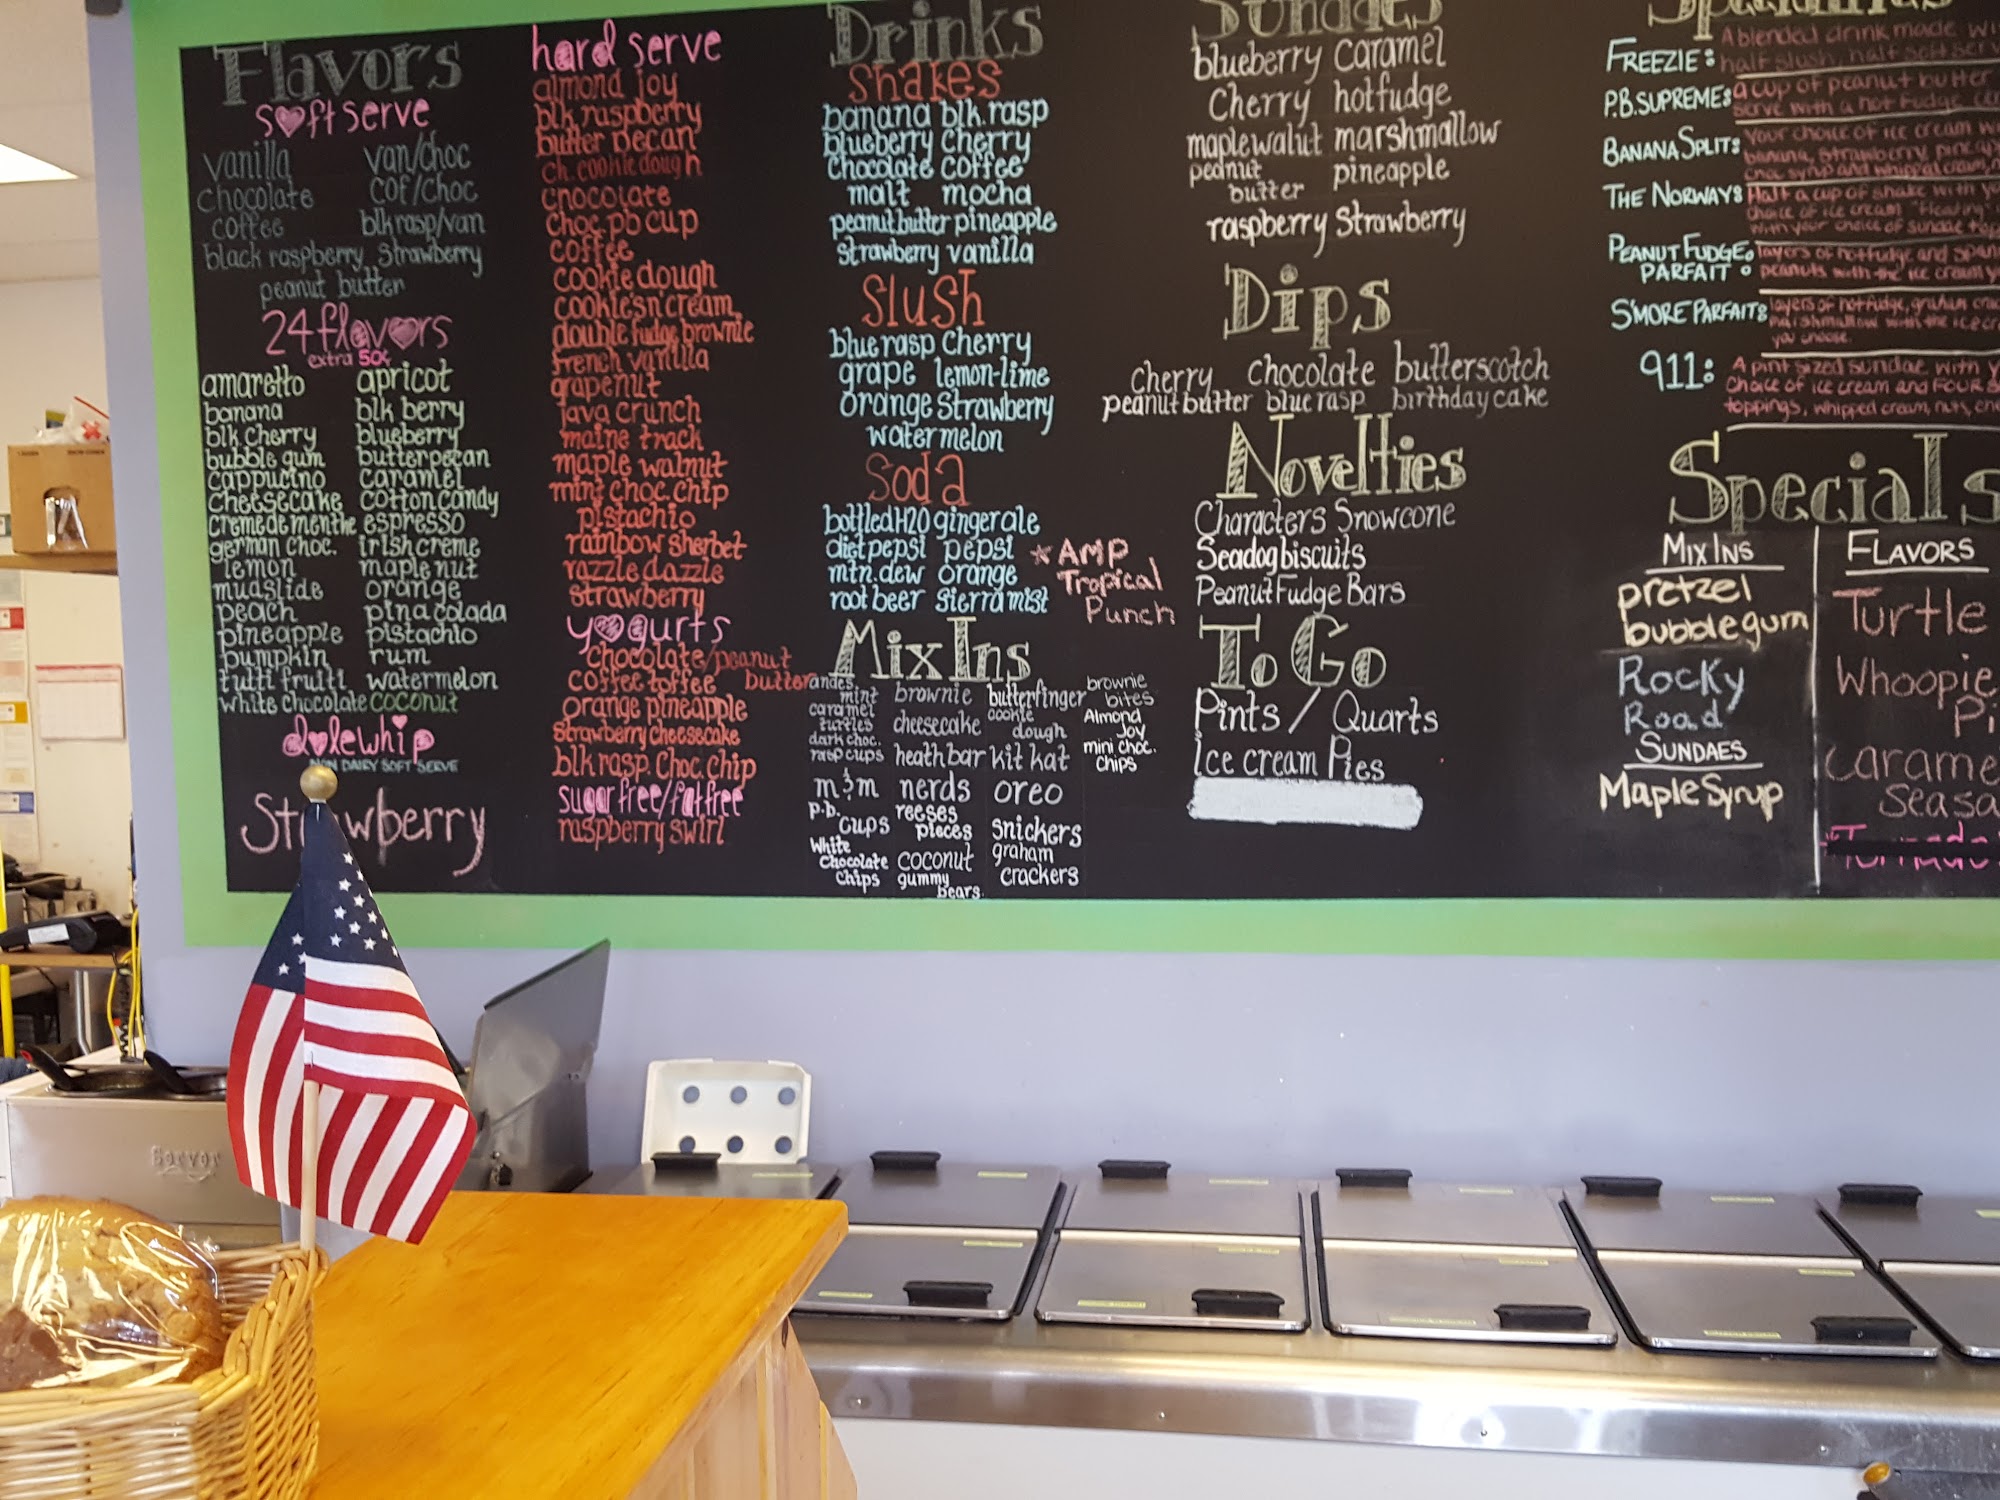 Flavors
soft serve
vanilla van/choc
chocolate cof/choc
coffee blk rasp/van
black raspberry strawberry
peanut butter
24 flavors
extra 50¢
amaretto apricot
banana blk berry
blk cherry blueberry
bubble gum butterpecan
cappucino caramel
cheesecake cotton candy
creme de menthe espresso
german choc. irish creme
lemon maple nut
mudslide orange
peach pina colada
pineapple pistachio
pumpkin rum
tutti fruiti watermelon
white chocolate coconut
dolewhip
NON DAIRY SOFT SERVE
Strawberry
hard serve
almond joy
blk raspberry
butter pecan
ch. cookie dough
chocolate
choc. pb cup
coffee
cookie dough
cookies n' cream
double fudge brownie
french vanilla
grapenut
java crunch
maine track
maple walnut
mint choc. chip
pistachio
rainbow sherbet
razzle dazzle
strawberry
yogurts
chocolate/peanut butter
coffee toffee
orange pineapple
strawberry cheesecake
blk rasp. choc. chip
sugar free/fat free
raspberry swirl
Drinks
shakes
banana blk. rasp
blueberry cherry
chocolate coffee
malt mocha
peanutbutter pineapple
strawberry vanilla
slush
blue rasp cherry
grape lemon-lime
orange strawberry
watermelon
Soda
bottled H2O gingerale
diet pepsi pepsi
mtn. dew orange
root beer sierra mist
* AMP
Tropical
Punch
Mix Ins
andes mint brownie butterfinger brownie bites
caramel turtles cheesecake cookie dough Almond Joy
dark choc. rasp cups heath bar kit kat mini choc. chips
m&m nerds oreo
p.b. cups reeses pieces snickers
White Chocolate Chips coconut graham crackers
gummy bears
Sundaes
blueberry caramel
cherry hotfudge
maple walnut marshmallow
peanut butter pineapple
raspberry strawberry
Dips
cherry chocolate butterscotch
peanut butter blue rasp birthday cake
Novelties
Characters Snowcone
Seadog biscuits
Peanut Fudge Bars
To Go
Pints / Quarts
Ice cream Pies
FREEZIE: A blended drink made wi
half slush, half soft serv
P.B. SUPREME: a cup of peanut butter
serve with a hot fudge
BANANA SPLIT: your choice of ice cream w
banana, strawberry, pineap
choc syrup and whipped cream
THE NORWAY: Half a cup of shake with yo
choice of ice cream "floating"
with your choice of sundae top
PEANUT FUDGE PARFAIT: layers of hotfudge and
peanuts with the ice cream y
S'MORE PARFAIT: layers of hot fudge, graham
marshmallow with the ice cr
you choose.
911: A pint sized sundae with y
choice of ice cream and FOUR
toppings, whipped cream, nuts, che
Specials
MIX INS
pretzel
bubblegum
Rocky
Road
SUNDAES
Maple Syrup
FLAVORS
Turtle
Whoopie
Pi
Carame
Seasa
Server